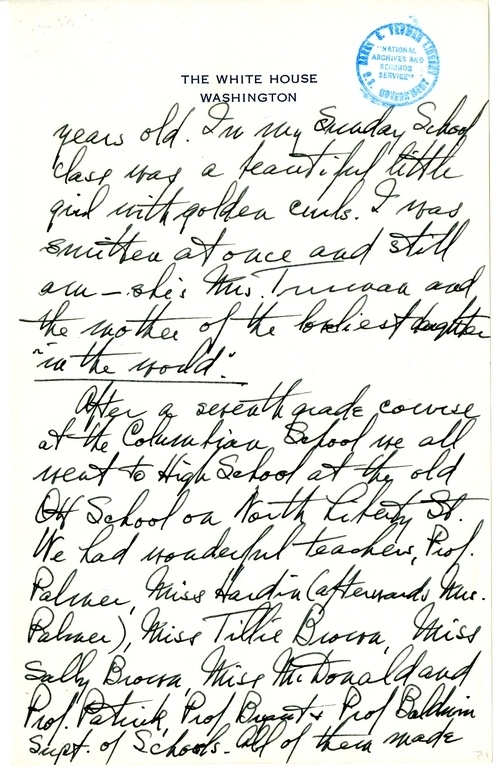 HARRY S. TRUMAN LIBRARY
"NATIONAL
ARCHIVES AND
RECORDS
SERVICE"
U.S. GOVERNMENT
THE WHITE HOUSE
WASHINGTON
years old. In my Sunday School
class was a beautiful little
girl with golden curls. I was
smitten at once and still
am – she's Mrs. Truman and
the mother of the lovliest daughter
"in the world".
After a seventh grade course
at the Columbian School we all
went to High School at the old
Ott School on North Liberty St.
We had wonderful teachers, Prof.
Palmer, Miss Hardin (afterwards Mrs.
Palmer), Miss Tillie Brown, Miss
Sally Brown, Miss McDonald and
Prof. Patrick, Prof Bryant & Prof Baldwin
Supt. of Schools. All of them made
21